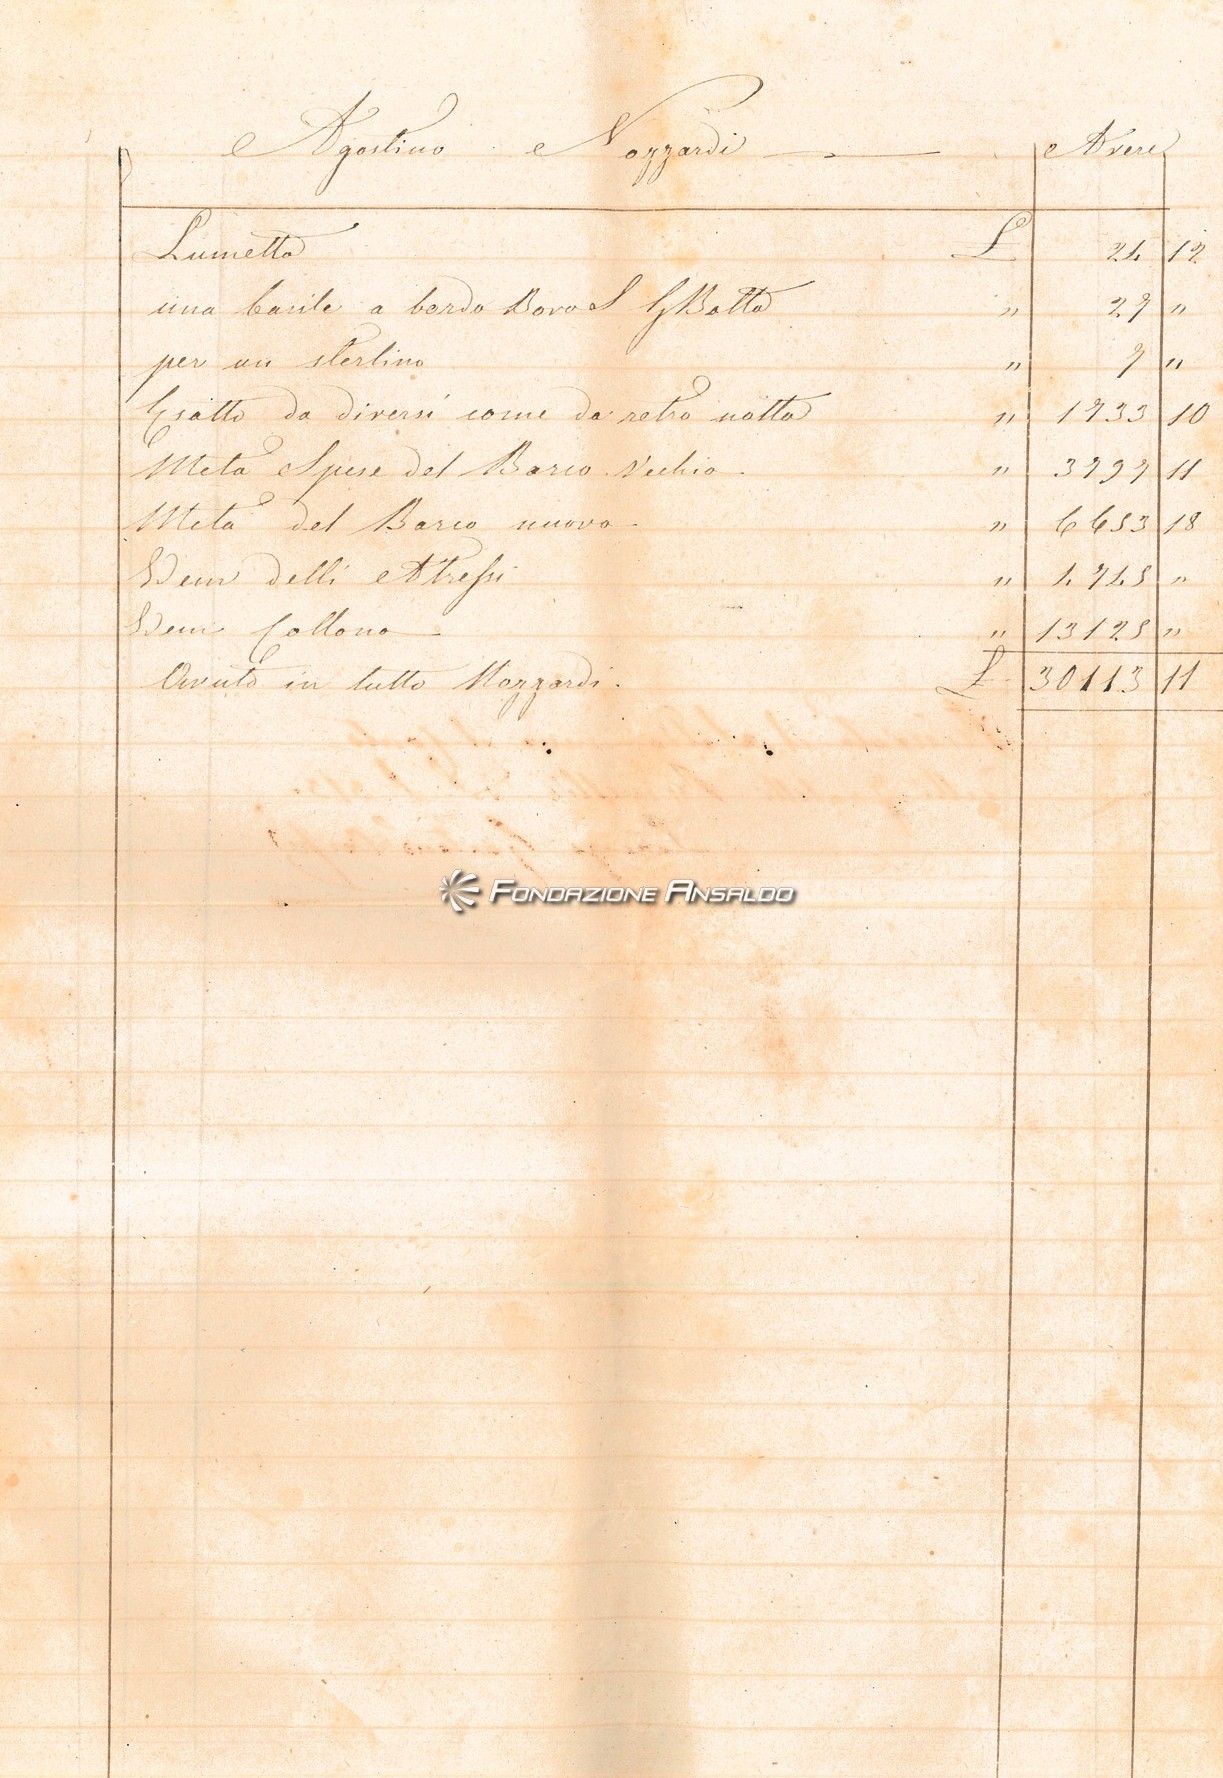 Agostino Nozzardi — Avere
Lumetta £ 24 12
una barile a bordo Bovo S GBatta " 27 "
per un sterlino " 7 "
Esatto da diversi come da retro notta " 1733 10
Metà Spese del Barco Vechio " 3797 11
Metà del Barco nuovo " 6653 18
Idem delli Attressi " 4745 "
Idem Collona " 13125 "
Avuto in tutto Nozzardi. £ 30113 11
Fondazione Ansaldo